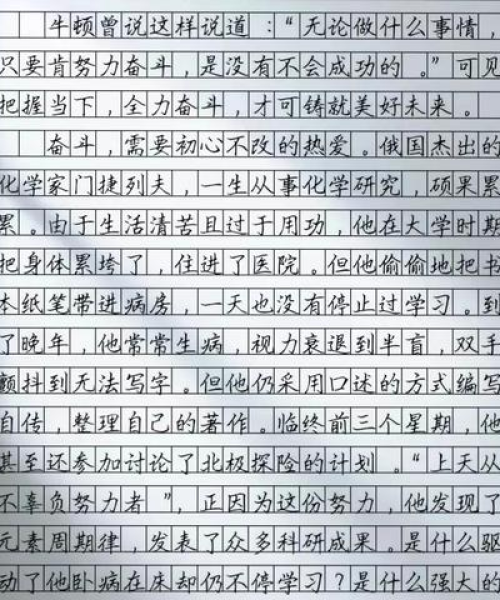 牛顿曾说这样说道：“无论做什么事情，
只要肯努力奋斗，是没有不会成功的。”可见
把握当下，全力奋斗，才可铸就美好未来。
奋斗，需要初心不改的热爱。俄国杰出的
化学家门捷列夫，一生从事化学研究，硕果累
累。由于生活清苦且过于用功，他在大学时期
把身体累垮了，住进了医院。但他偷偷地把书
本纸笔带进病房，一天也没有停止过学习。到
了晚年，他常常生病，视力衰退到半盲，双手
颤抖到无法写字。但他仍采用口述的方式编写
自传，整理自己的著作。临终前三个星期，他
甚至还参加讨论了北极探险的计划。“上天从
不辜负努力者”，正因为这份努力，他发现了
元素周期律，发表了众多科研成果。是什么驱
动了他卧病在床却仍不停学习？是什么强大的